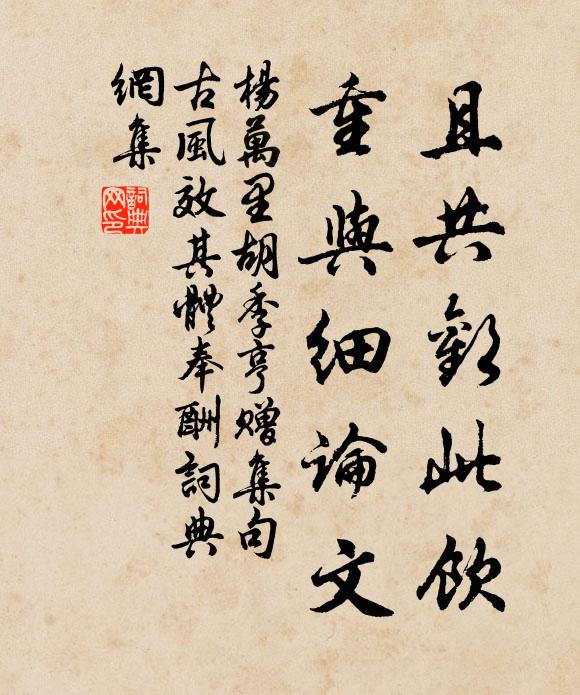 且共歡此飲
重與細論文
楊萬里胡季亨贈集句
古風效其體奉酬詞典
網集
詞典
网印